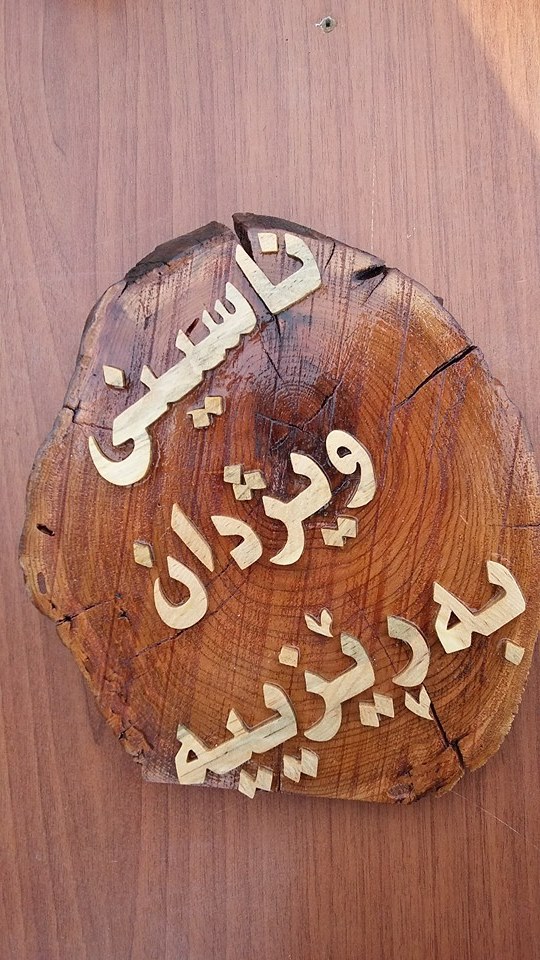 ناسینی
ویژدان
بەڕێزییە